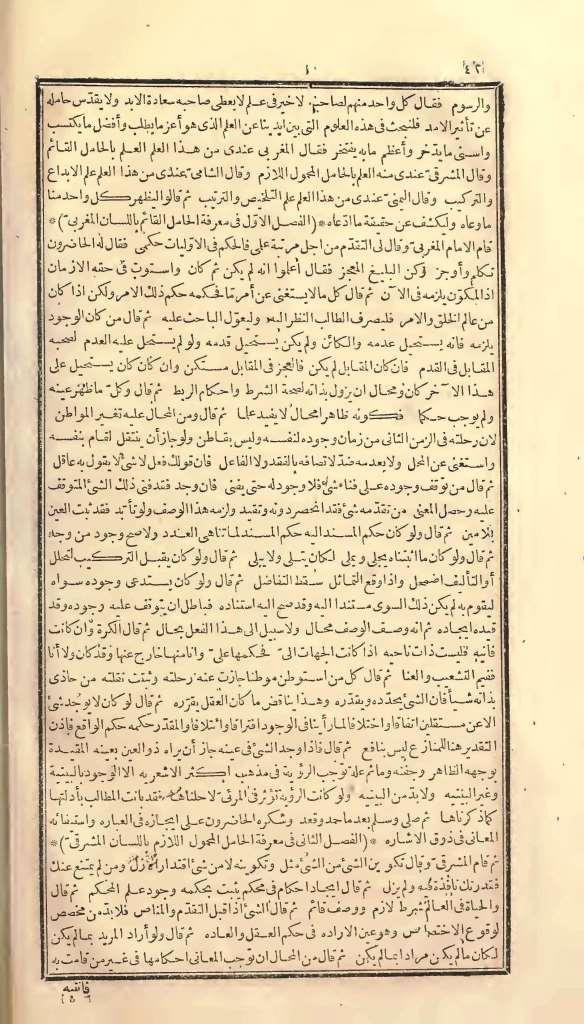 ٤٢
والرسوم فقال كل واحد منهم لصاحبه لاخير فى علم لا يعطى صاحبه سعادة الابد ولا يقدّس حامله
عن تأثير الامد فلنبحث فى هذه العلوم التى بين ايدينا عن العلم الذى هو أعز ما يطلب وأفضل ما يكتسب
واسنى ما يدّخر وأعظم مابه يفتخر فقال المغربى عندى من هذا العلم العلم بالحامل القائم
وقال المشرقىّ عندى منه العلم بالحامل المحمول اللازم وقال الشامىّ عندى من هذا العلم علم الابداع
والتركيب وقال اليمنىّ عندى من هذا العلم علم التلخيص والترتيب ثم قالوا ليظهر كل واحد منا
ما وعاه وليكشف عن حقيقة ما ادّعاه *(الفصل الاوّل فى معرفة الحامل القائم باللسان المغربى)*
قام الامام المغربىّ وقال لى التقدّم من اجل مرتبة علمى فالحكم فى الاوليات حكمى فقال له الحاضرون
تكلم وأوجز وكن البليغ المعجز فقال اعلموا انه لم يكن ثم كان واستوت فى حقه الازمان
اذ المكوّن يلزمه فى الآن ثم قال كل مالا يستغنى عن أمرتا فحكمه حكم ذلك الامر ولكن اذا كان
من عالم الخلق والامر فليصرف الطالب النظر اليه وليعوّل الباحث عليه ثم قال من كان الوجود
يلزمه فانه يستحيل عدمه والكائن ولم يكن يستحيل قدمه ولو لم يستحل عليه العدم لصحبه
المقابل فى القدم فان كان المقابل لم يكن فالعجز فى المقابل مستكن وان كان كان يستحيل على
هذا الآخر كان ومحال ان يزول بذاته لصحة الشرط واحكام الربط ثم قال وكلّ ما ظهر عينه
ولم يوجب حكما فكونه ظاهرا محال لا يفيد علما ثم قال ومن المحال عليه تغير المواطن
لان رحلته فى الزمن الثانى من زمان وجوده لنفسه وليس بقاطن ولو جاز أن ينتقل لقام بنفسه
واستغنى عن المحل ولا يعدمه ضدّ لاتصافه بالفقد ولا الفاعل فان قولك فعل لا شئ لا يقول به عاقل
ثم قال من توقف وجوده على فناء شئ فلا وجود له حتى يفنى فان وجد فقد فنى ذلك الشئ المتوقف
عليه وحصل المعنى من تقدّمه شئ فقد انحصر دونه وتقيد ولزمه هذا الوصف ولو تأبد فقد ثبت العين
بلا مين ثم قال ولو كان حكم المسند اليه حكم المسند لما تناهى العدد ولا صح وجود من وجد
ثم قال ولو كان ما اثبتناه يخلى ويملى لكان يبلى ولا يبلى ثم قال ولو كان يقبل التركيب لتحلل
أو التأليف اضمحل واذا وقع التماثل سقط التفاضل ثم قال ولو كان يستدعى وجوده سواه
ليقوم به لم يكن ذلك السوى مستندا اليه وقد صح اليه استناده فباطل ان يتوقف عليه وجوده وقد
قيده ايجاده ثم انه وصف الوصف محال ولا سبيل الى هذا الفعل بحال ثم قال الكرة وان كانت
فانيه فليست ذات ناحيه اذا كانت الجهات الىّ فحكمها علىّ وانا منها خارج عنها وقد كان ولا أنا
ففيم التشعيب والعنا ثم قال كل من استوطن موطنا جازت عنه رحلته وثبتت نقلته من حاذى
بذاته شيأ فان الشئ يحدّده ويقدّره وهذا يناقض ما كان العقل يقرّره ثم قال لو كان لا يوجد شئ
الا عن مستقلين اتفاقا واختلافا لما رأينا فى الوجود افتراقا وائتلافا والمقدّر حكمه حكم الواقع فاذن
التقدير هنا للمنازع ليس بنافع ثم قال فاذا وجد الشئ فى عينه جاز أن يراه ذو العين بعينه المقيدة
بوجهه الظاهر وجفنه وما ثم علة توجب الرؤية فى مذهب اكثر الاشعريه الا الوجود بالبنية
وغير البنيه ولابدّ من البنيه ولو كانت الرؤية تؤثر فى المرئى لاحلناها فقد بانت المطالب بأدلتها
كما ذكرناها ثم صلى وسلم بعد ما حمد وقعد وشكره الحاضرون على ايجازه فى العباره واستيفائه
المعانى فى ذوق الاشاره *(الفصل الثانى فى معرفة الحامل المحمول اللازم باللسان المشرقىّ)*
ثم قام المشرقىّ وقال تكوين الشئ من الشئ ميل وتكوينه لا من شئ اقتدار أزل ومن لم يمتنع عنك
فقدرتك نافذة فيه ولم يزل ثم قال ايجاد احكام فى محكم يثبت بحكمه وجود علم المحكم ثم قال
والحياة فى العالم شرط لازم ووصف قائم ثم قال الشئ اذا قبل التقدّم والمناص فلابدّ من مخصص
لوقوع الاختصاص وهو عين الاراده فى حكم العقل والعاده ثم قال ولو أراد المريد بما لم يكن
لكان مالم يكن مرادا بما لم يكن ثم قال من المحال ان توجب المعانى احكامها فى غير من قامت به
فانتبه